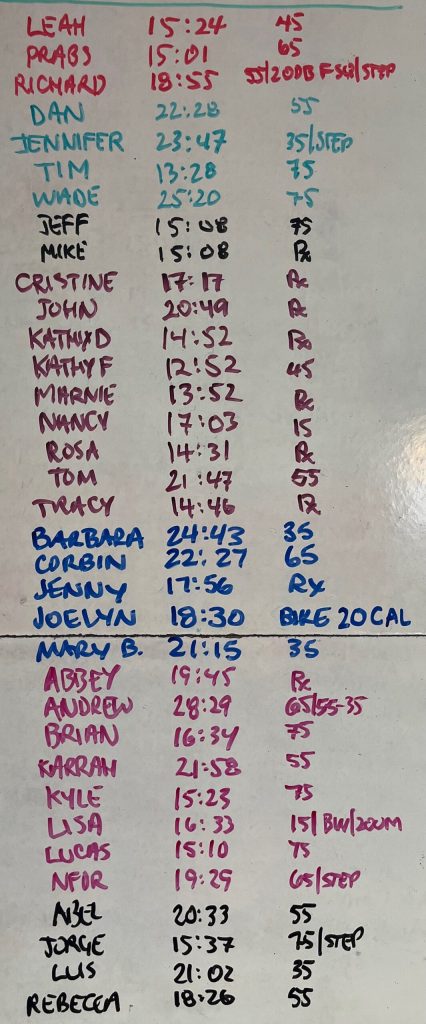 LEAH 15:24 45
PRABS 15:01 65
RICHARD 18:55 55/20DB F SQ/STEP
DAN 22:28 55
JENNIFER 23:47 35/STEP
TIM 13:28 75
WADE 25:20 75
JEFF 15:08 75
MIKE 15:08 Rx
CRISTINE 17:17 Rx
JOHN 20:49 Rx
KATHY D 14:52 Rx
KATHY F 12:52 45
MARNIE 13:52 Rx
NANCY 17:03 15
ROSA 14:31 Rx
TOM 21:47 55
TRACY 14:46 Rx
BARBARA 24:43 35
CORBIN 22:27 65
JENNY 17:56 Rx
JOELYN 18:30 BIKE 20 CAL
MARY B. 21:15 35
ABBEY 19:45 Rx
ANDREW 28:29 65/55-35
BRIAN 16:34 75
KARRAH 21:58 55
KYLE 15:23 75
LISA 16:33 15/BW/200M
LUCAS 15:10 75
19:29 65/STEP
ABEL 20:33 55
JORGE 15:37 75/STEP
LUIS 21:02 35
REBECCA 18:26 55